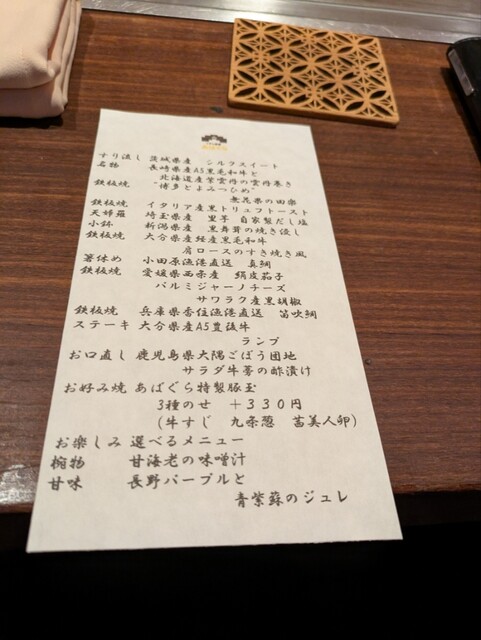 すり流し 茨城県産 シルクスイート
名物 長崎県産A5黒毛和牛と
北海道産紫雲丹の雲丹巻き
鉄板焼 "博多とよみつひめ"
無花果の田楽
鉄板焼 イタリア産黒トリュフトースト
天婦羅 埼玉県産 里芋 自家製だし塩
小鉢 新潟県産 黒舞茸の焼き浸し
鉄板焼 大分県産経産黒毛和牛
肩ロースのすき焼き風
箸休め 小田原漁港直送 真鯛
鉄板焼 愛媛県西条産 絹皮茄子
パルミジャーノチーズ
サワラク産黒胡椒
鉄板焼 兵庫県香住漁港直送 笛吹鯛
ステーキ 大分県産A5豊後牛
ランプ
お口直し 鹿児島県大隅ごぼう団地
サラダ牛蒡の酢漬け
お好み焼 あばぐら特製豚玉
3種のせ +330円
(牛すじ 九条葱 茜美人卵)
お楽しみ 選べるメニュー
椀物 甘海老の味噌汁
甘味 長野パープルと
青紫蘇のジュレ